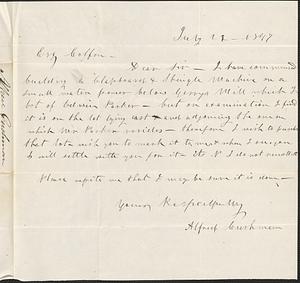 July 12 - 1847
Esq Coffin.
Dear Sir - I have commenced
building a Clapboard & Shingle Machine on a
small water power below Georges Mill which I
bot of Edwin Parker - but on examination I find
it is on the lot lying east and adjoining the one on
which Mr Parker resides - therefore I wish to purchase
that lot wish you to mark it to me & when I see you
I will settle with you for it. No I do not recollect
Please write me that I may be sure it is done -
Yours Respectfully
Alfred Cushman
Alfred Cushman